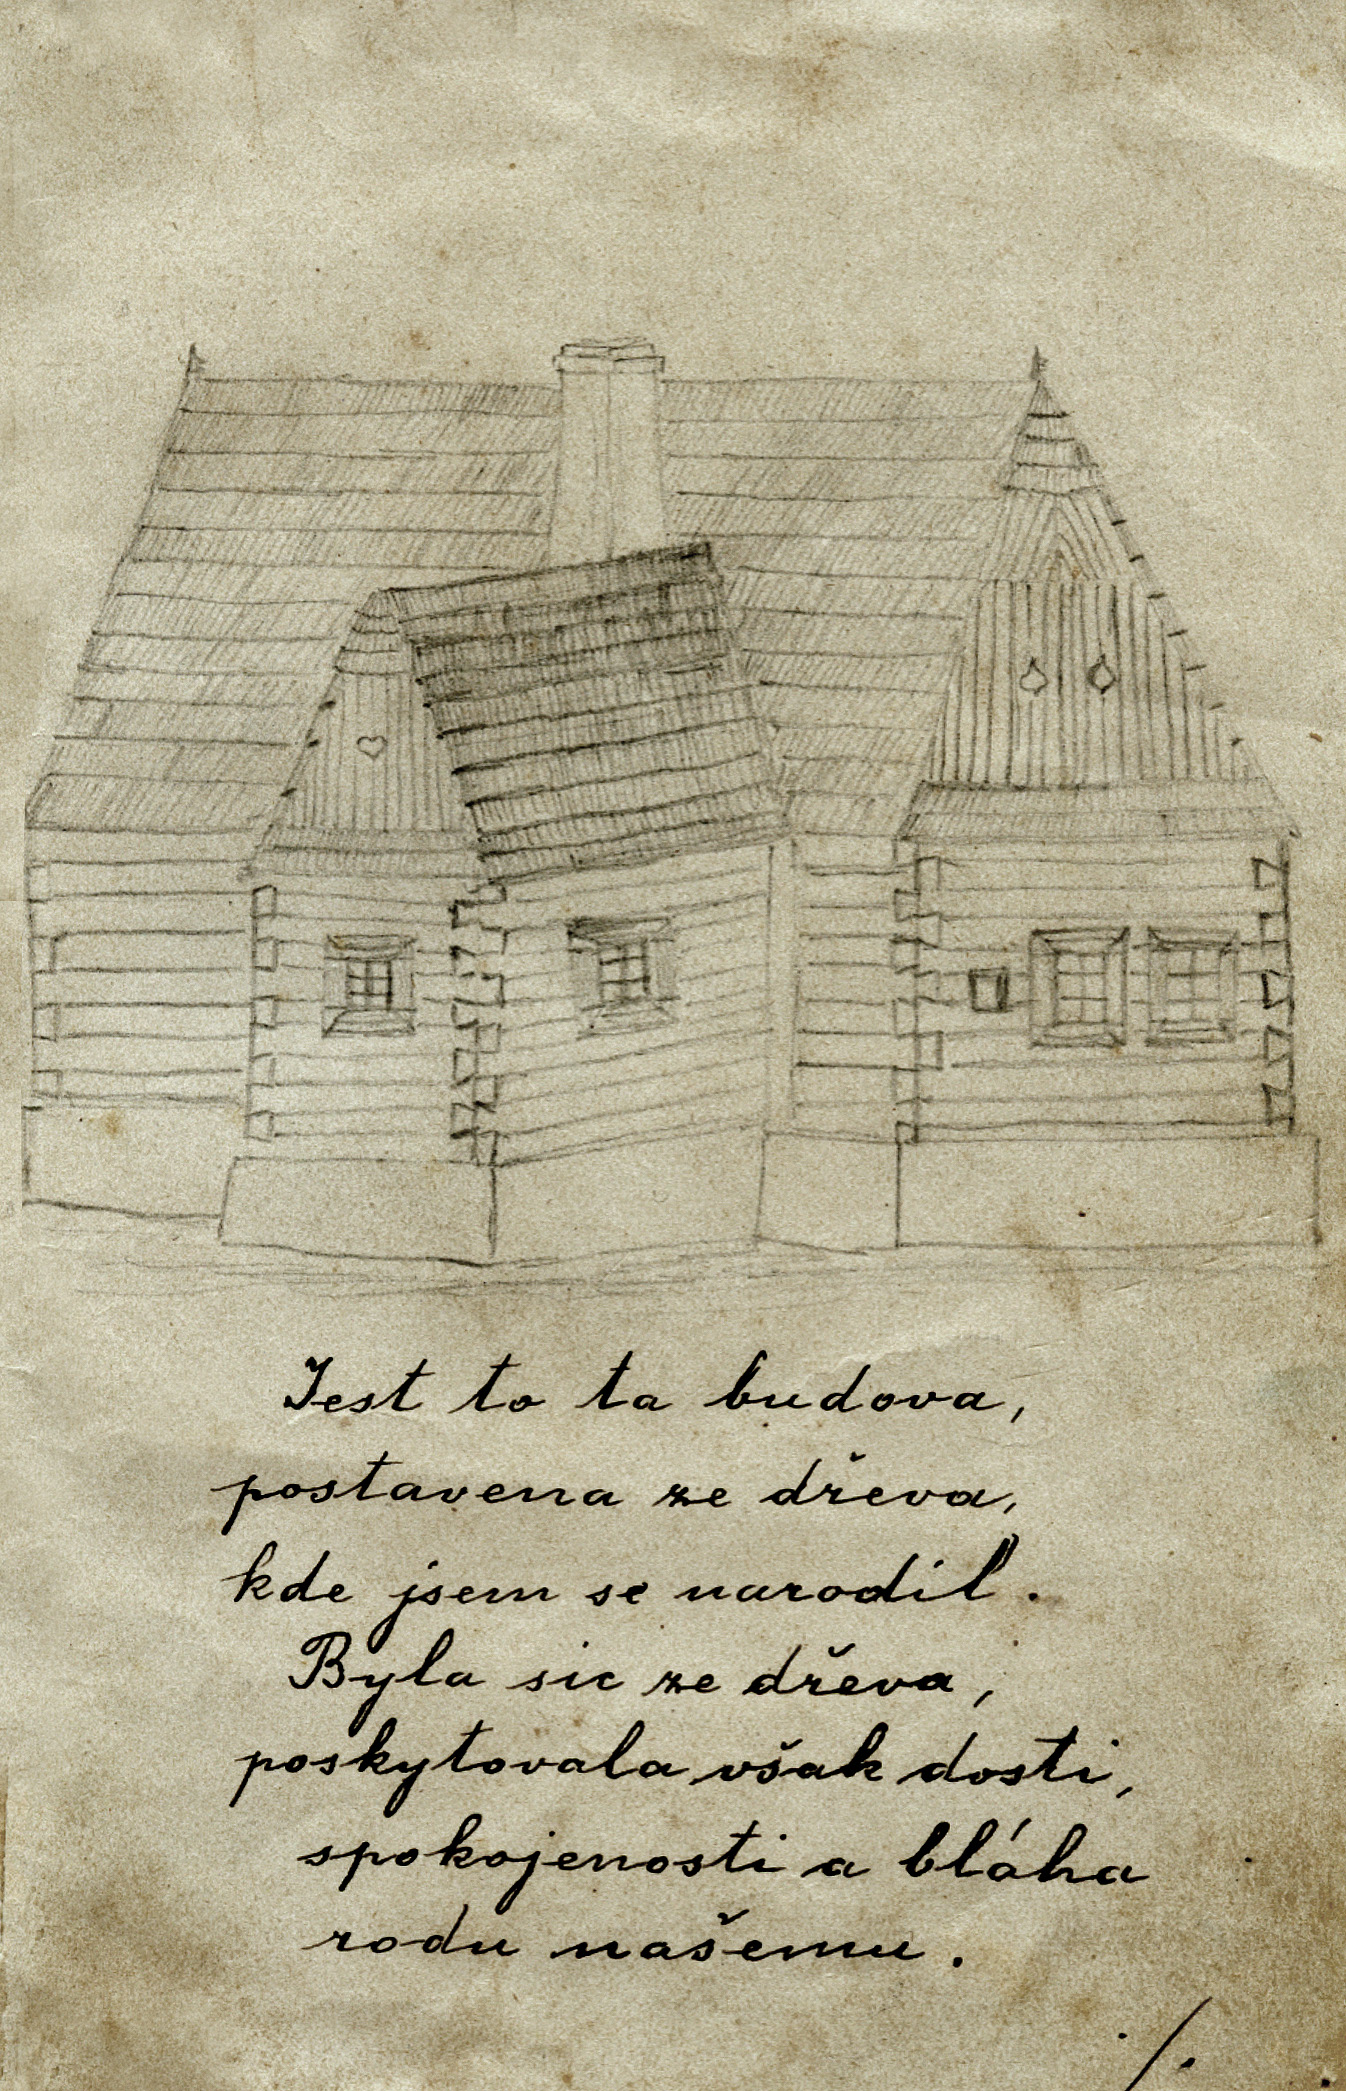 Jest to ta budova,
postavena ze dřeva,
kde jsem se narodil.
Byla sic ze dřeva,
poskytovala však dosti,
spokojenosti a bláha
rodu našemu.
./.